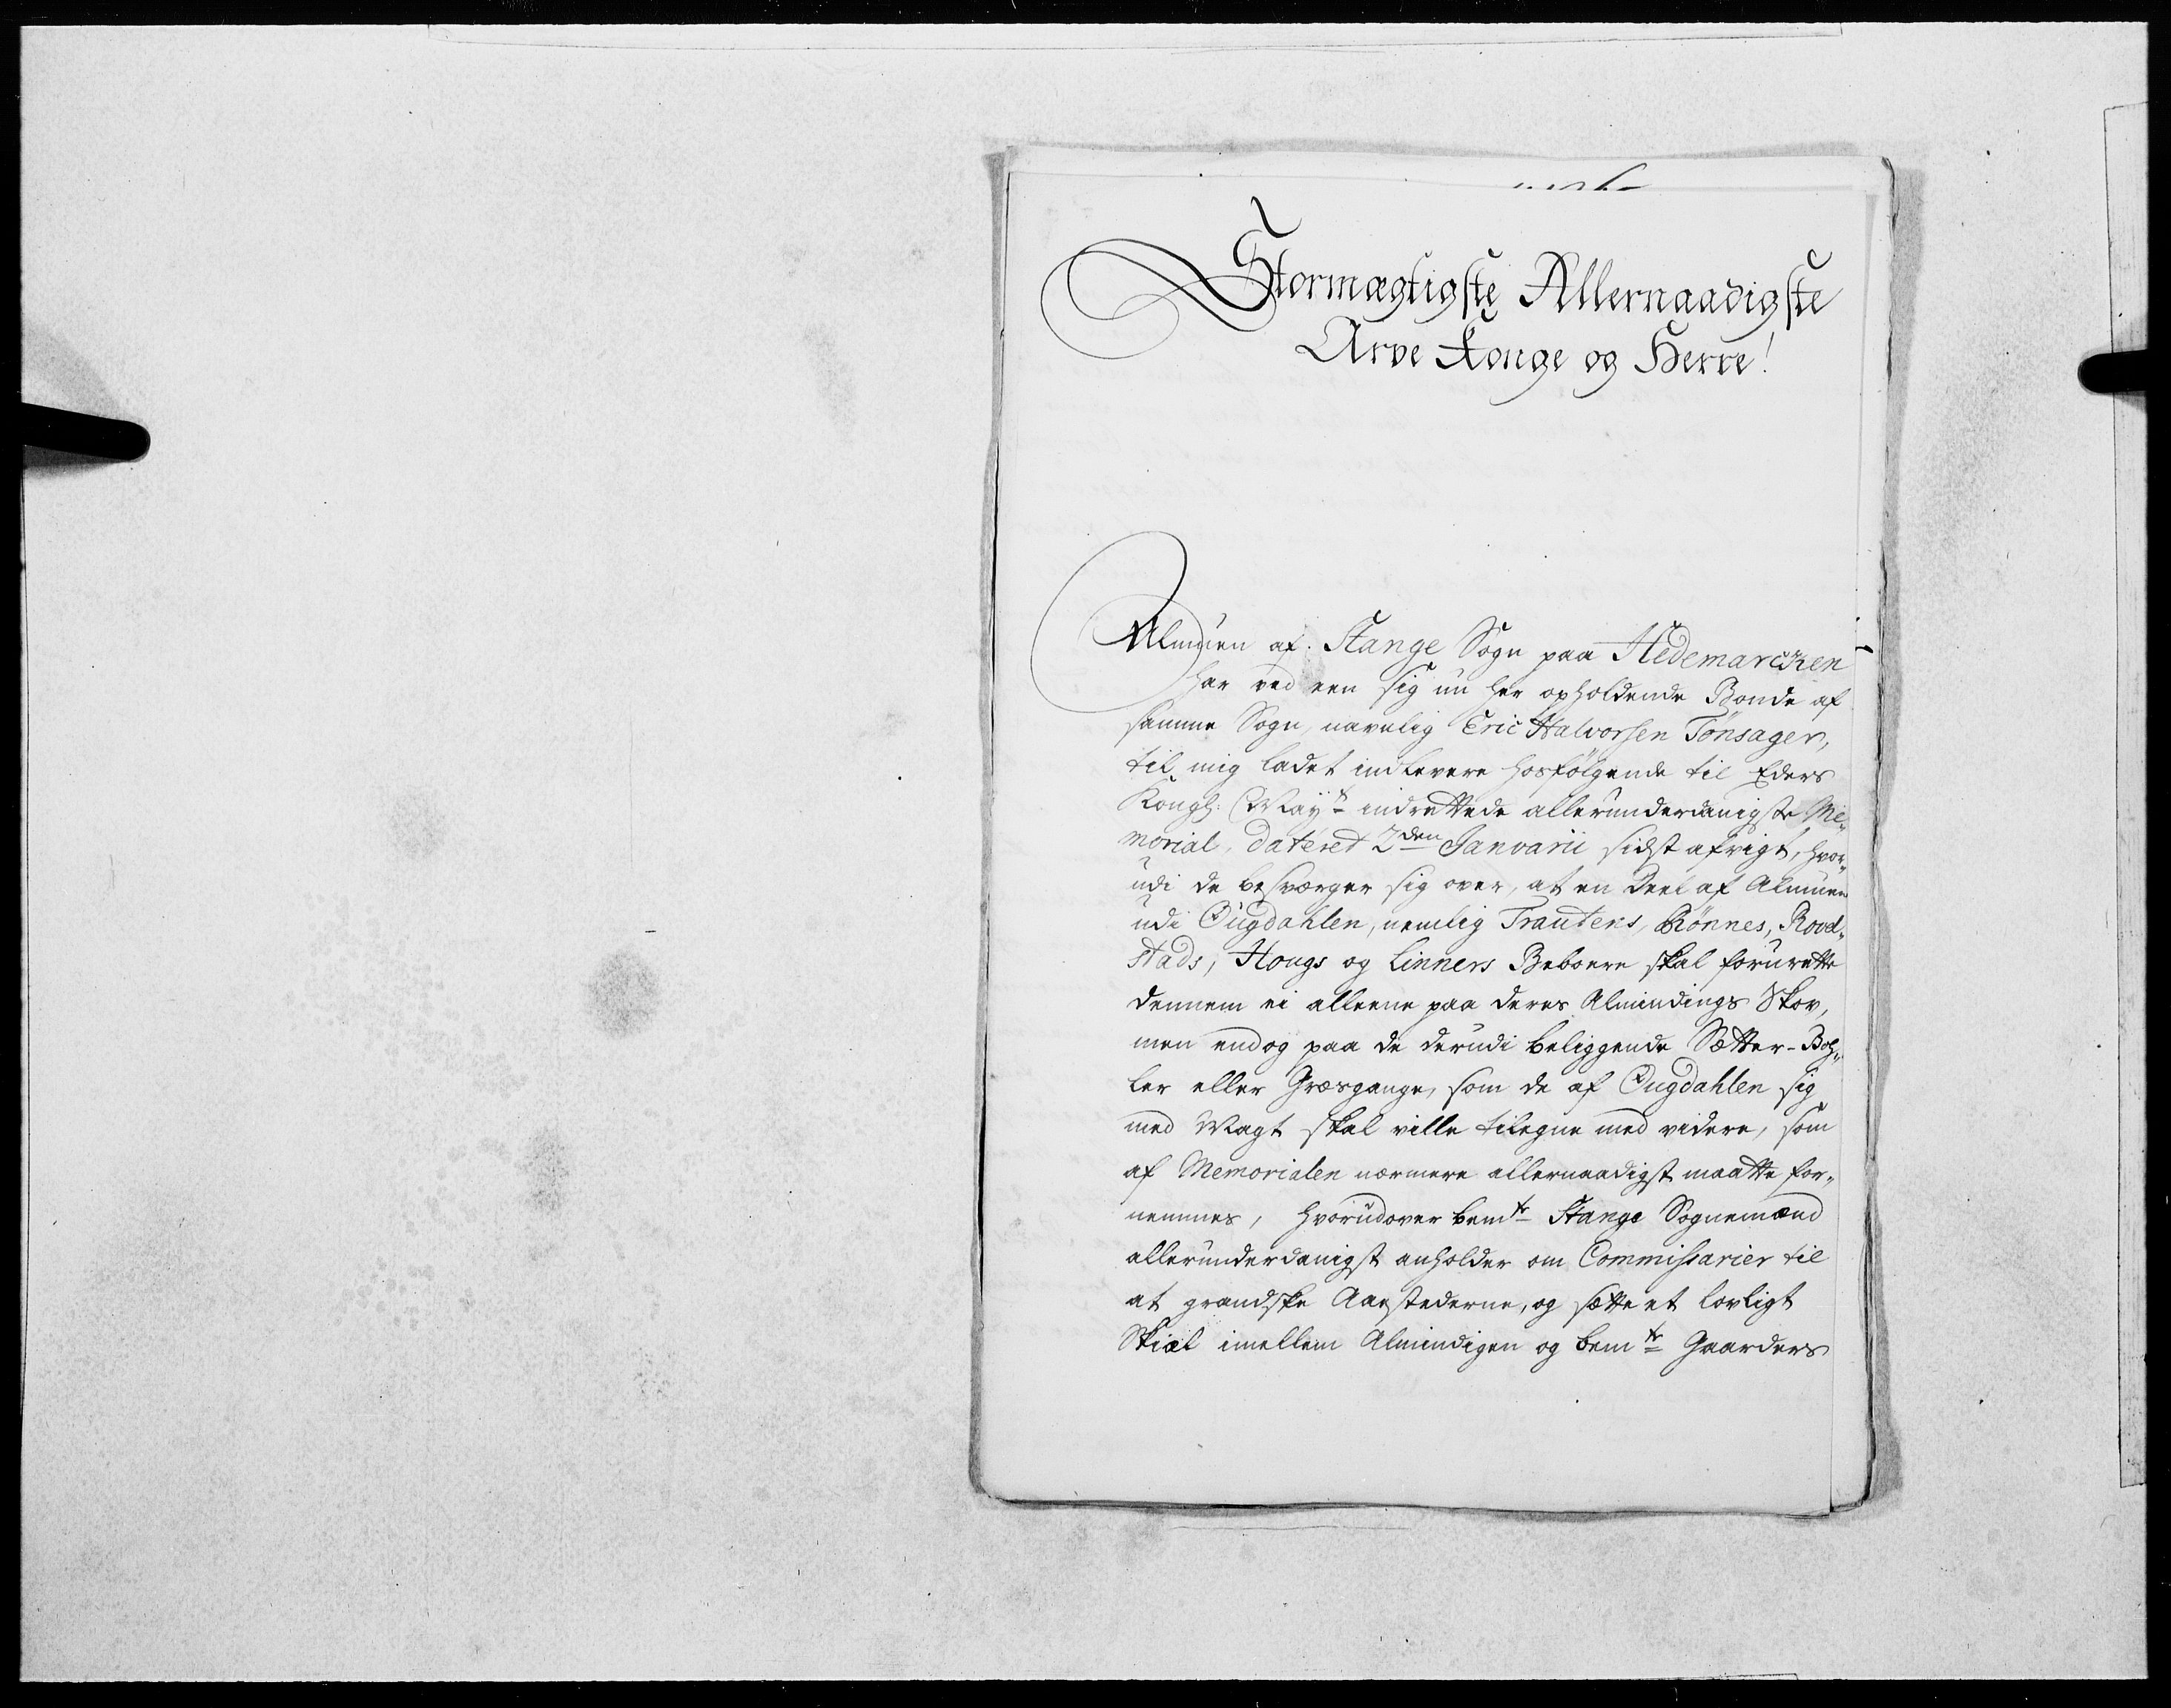 Stormægtigste Allernaadigste
Arve Konge og Herre!
Almuen af Stange Sogn paa Hedemarcken
har ved een sig nu her opholdende Bonde af
samme Sogn, navnlig Eric Halvorsen Tönsager,
til mig ladet indlevere hosfölgende til Eders
Kongl: Mayts indrettede allerunderdanigste Me„
morial, dateret 2den Janvarii sidst afvigt, hvor„
udi de besværger sig over, at en Deel af Almuen
udi Ougdahlen, nemlig Trautens, Rönnes, Rovel„
stads, Hougs og Linners Beboere skal forurette
dennem ei alleene paa deres Almindings Skov,
men endog paa de derudi beliggende Sætter-Böh„
ler eller Græsgange, som de af Ougdahlen sig
med Magt skal ville tilegne med videre, som
af Memorialen nærmere allernaadigst maatte for„
nemmes, hvorudover bemte Stange Sognemænd
allerunderdanigst anholder om Commissarier til
at grandske Aastederne, og sætte et lovligt
Skiæl imellem Almindigen og bemte Gaarders